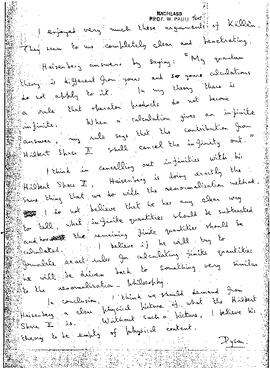 NACHLASS
PROF. W. PAULI
I enjoyed very much these arguments of Källén.
They seem to me completely clear and penetrating.
Heisenberg answers by saying: "My quantum
theory is different from yours and so your calculations
do not apply to it. In my theory there is
a rule that operator products do not become
infinite. When a calculation gives an infinite
answer, my rule says that the contribution from
Hilbert Space II shall cancel the infinity out."
I think in cancelling out infinities with his
Hilbert Space II, Heisenberg is doing exactly the
same thing that we do with the renormalisation method.
I do not believe that he has any clear way
to tell, what infinite quantities should be subtracted
and how the remaining finite quantities should be
calculated. I believe if he will try to
formulate exact rules for calculating finite quantities
he will be driven back to something very similar
to the renormalisation philosophy.
In conclusion, I think we should demand from
Heisenberg a clear physical picture of what the Hilbert
Space II is. Without such a picture, I believe his
theory to be empty of physical content.
Dyson.